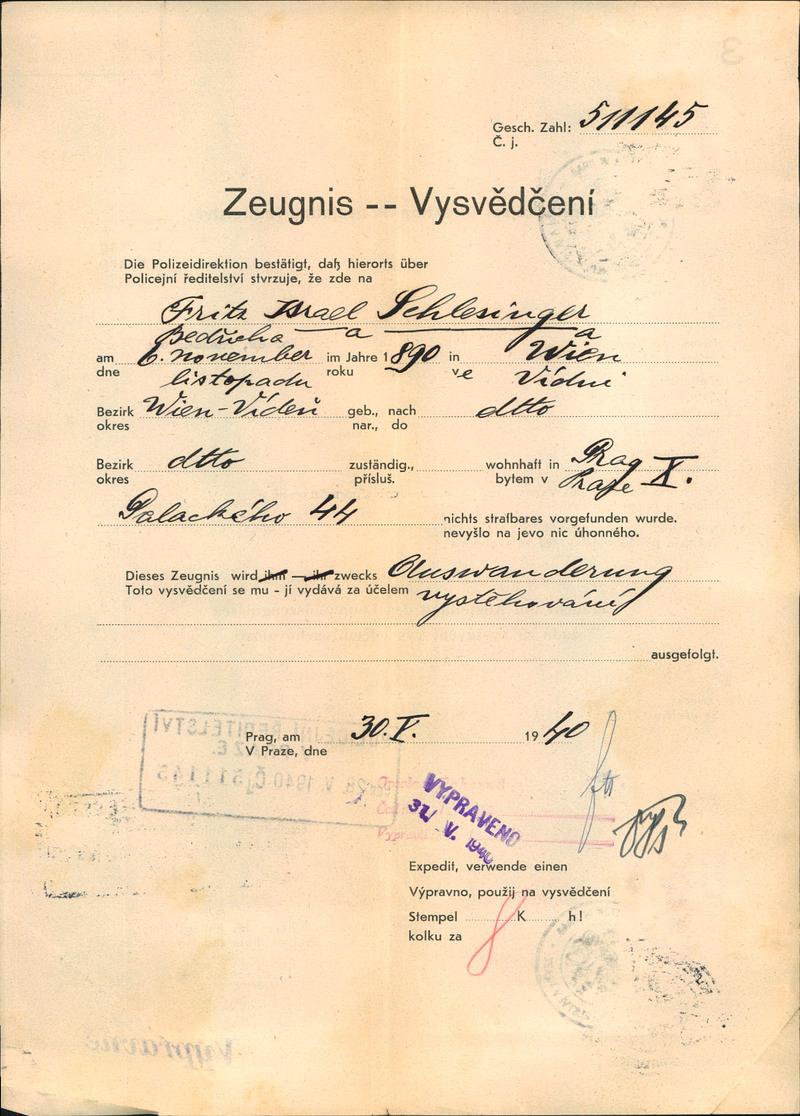 Gesch. Zahl: 511145
Č. j.
Zeugnis -- Vysvědčení
Die Polizeidirektion bestätigt, daß hierorts über
Policejní ředitelství stvrzuje, že zde na
Fritz Israel Schlesinger
Bedřicha a a
am 6. november im Jahre 1890 in Wien
dne listopadu roku ve Vídni
Bezirk Wien-Vídeň geb., nach dtto
okres nar., do
Bezirk dtto zuständig., wohnhaft in Prag X.
okres přísluš. bytem v Praze
Palackého 44 nichts strafbares vorgefunden wurde.
nevyšlo na jevo nic úhonného.
Dieses Zeugnis wird ihm — ihr zwecks Auswanderung
Toto vysvědčení se mu - jí vydává za účelem vystěhování
ausgefolgt.
Prag, am 30.V. 1940
V Praze, dne
POLICEJNÍ ŘEDITELSTVÍ
V PRAZE.
28. V. 1940 Čj 511145
VYPRAVENO
31. V. 1940
Expedit, verwende einen
Výpravno, použij na vysvědčení
Stempel 8 K h!
kolku za